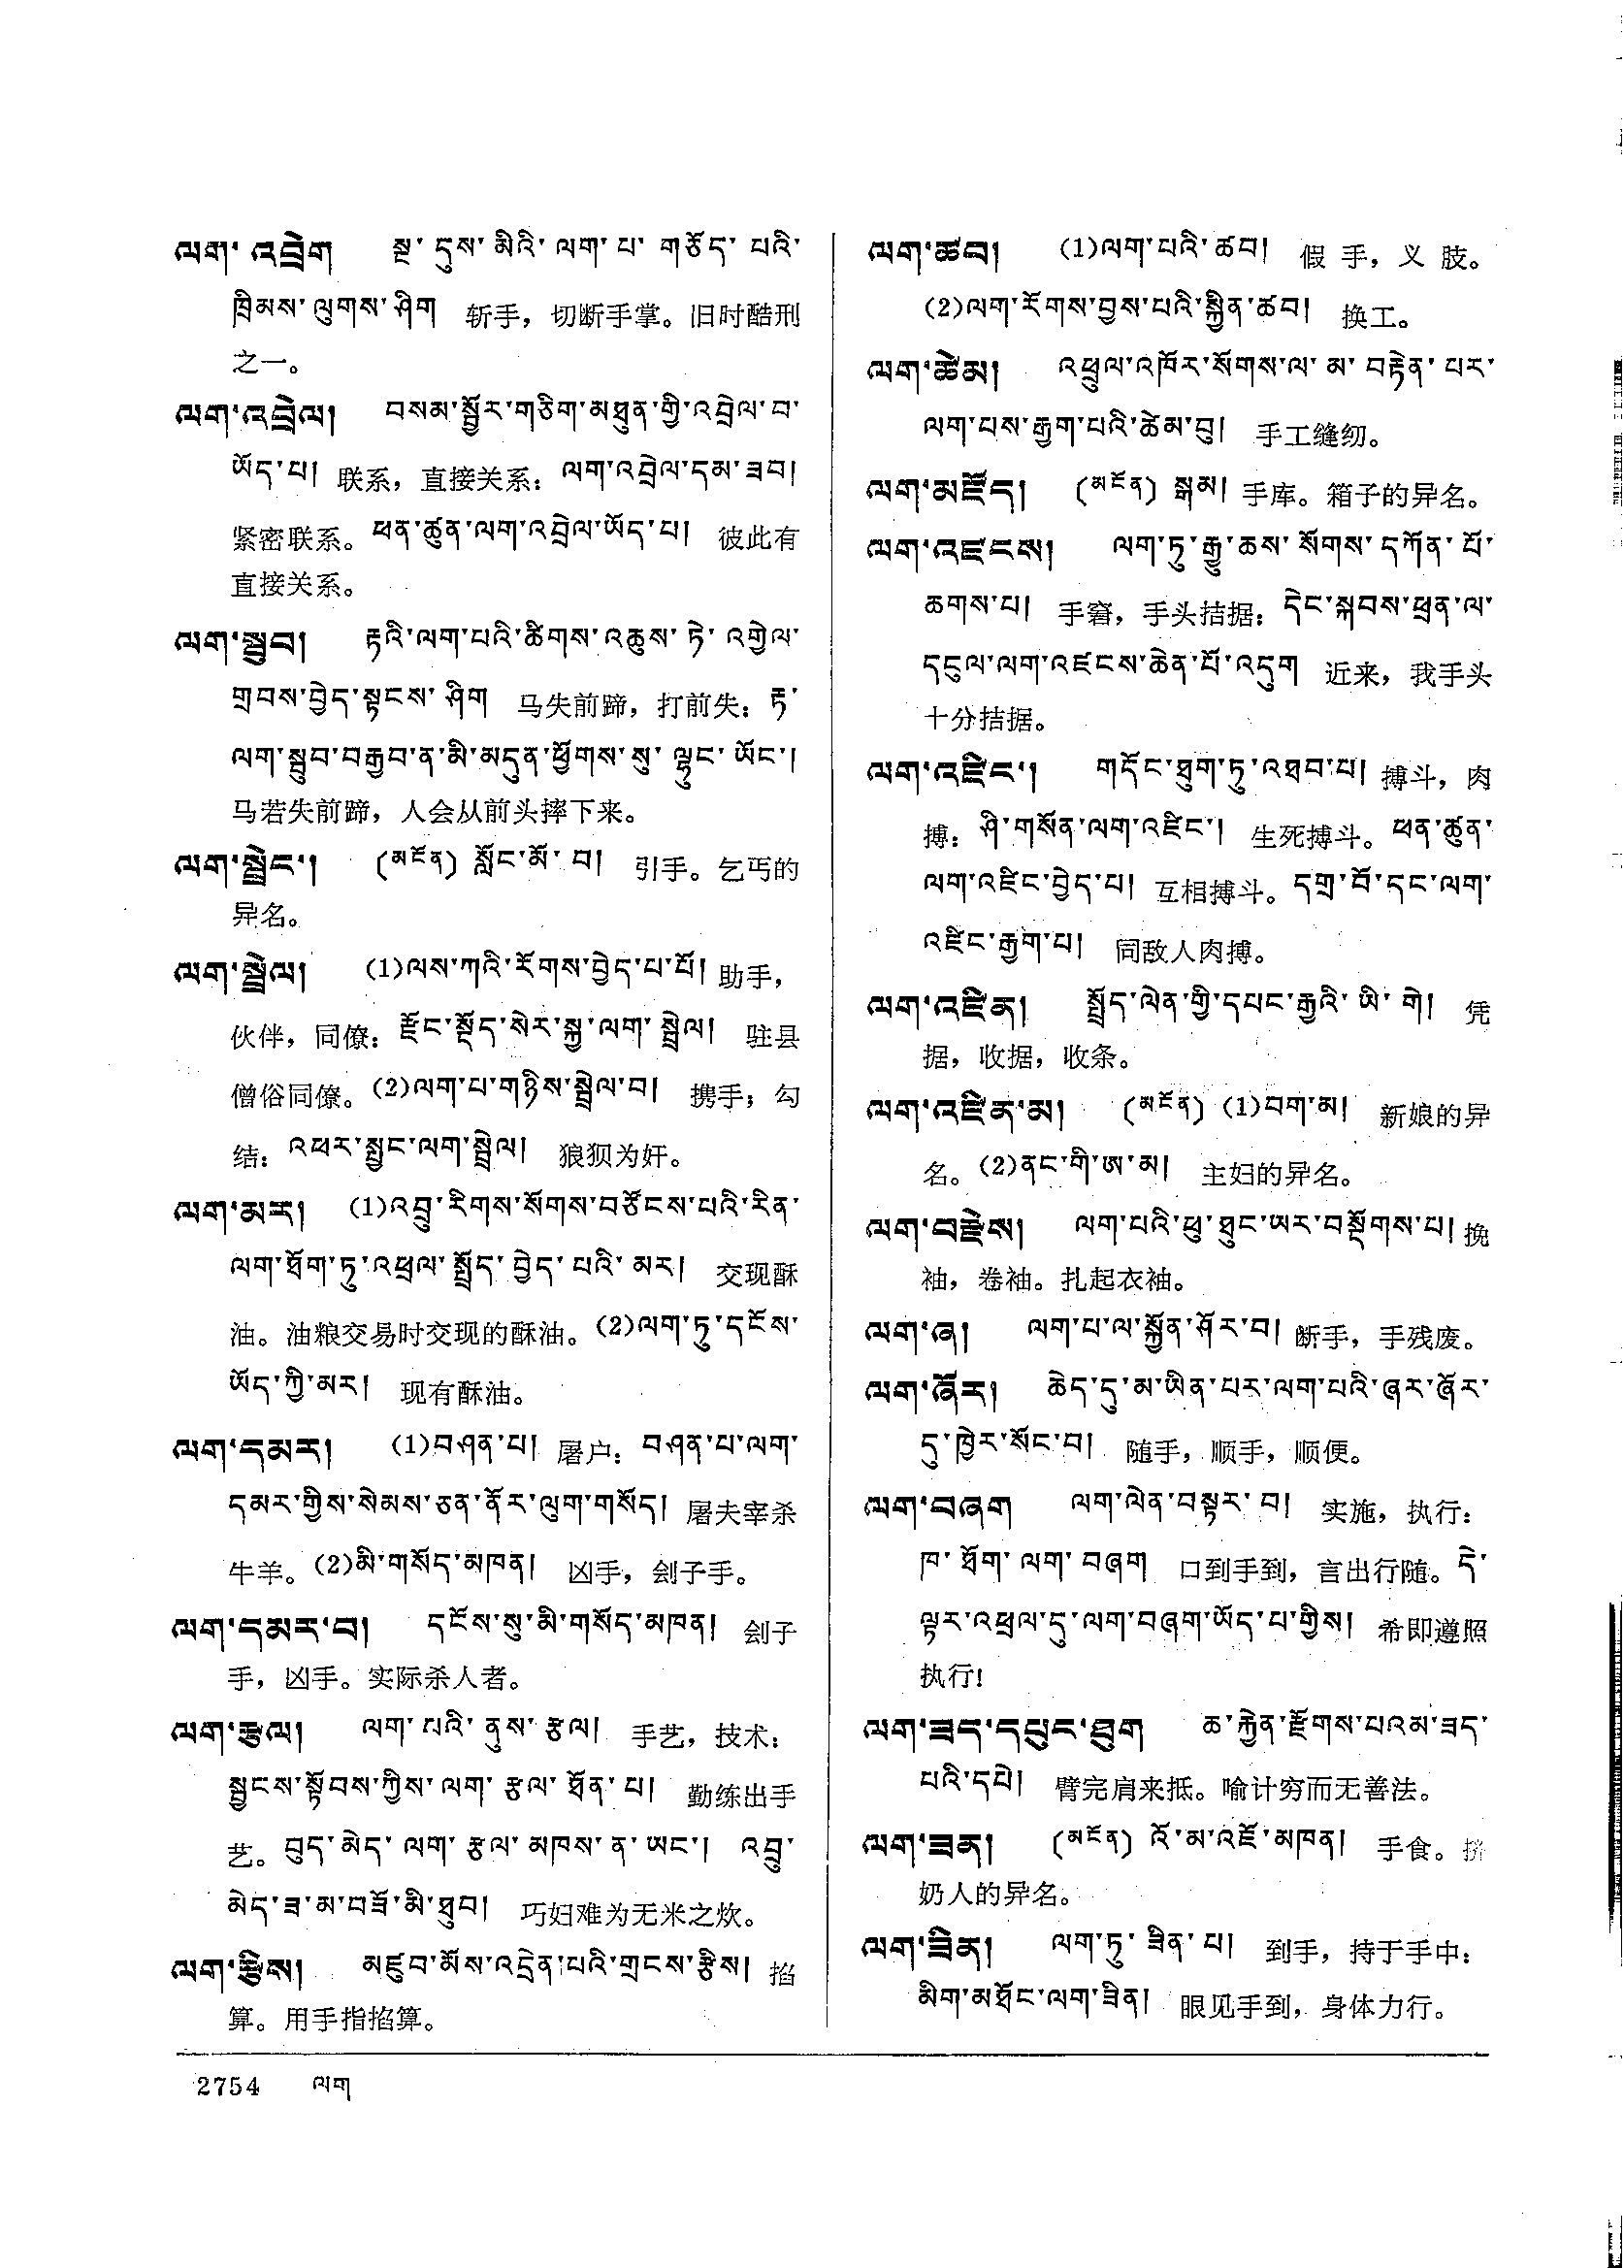 ལག་འབྲེག སྔ་དུས་མིའི་ལག་པ་གཅོད་པའི་
ཁྲིམས་ལུགས་ཤིག 斩手，切断手掌。旧时酷刑
之一。
ལག་འབྲེལ། བསམ་སྦྱོར་གཅིག་མཐུན་གྱི་འབྲེལ་བ་
ཡོད་པ། 联系，直接关系：ལག་འབྲེལ་དམ་ཟབ།
紧密联系。ཕན་ཚུན་ལག་འབྲེལ་ཡོད་པ། 彼此有
直接关系。
ལག་སྦྲུབ། རྟའི་ལག་པའི་ཚིགས་འཆུས་ཏེ་འགྱེལ་
གྲབས་བྱེད་སྟངས་ཤིག 马失前蹄，打前失：རྟ་
ལག་སྦྲུབ་བརྒྱབ་ན་མི་མདུན་ཕྱོགས་སུ་ལྷུང་ཡོང་།
马若失前蹄，人会从前头摔下来。
ལག་སྦྲེང་། (མངོན) སློང་མོ་བ། 引手。乞丐的
异名。
ལག་སྦྲེལ། (1)ལས་ཀའི་རོགས་བྱེད་པ་པོ། 助手，
伙伴，同僚：རྫོང་སྡོད་སེར་སྐྱ་ལག་སྦྲེལ། 驻县
僧俗同僚。(2)ལག་པ་གཉིས་སྦྲེལ་བ། 携手；勾
结：འཕར་སྤྱང་ལག་སྦྲེལ། 狼狈为奸。
ལག་མར། (1)འབྲུ་རིགས་སོགས་བཙོངས་པའི་རིན་
ལག་ཐོག་ཏུ་འཕྲལ་སྤྲོད་བྱེད་པའི་མར། 交现酥
油。油粮交易时交现的酥油。(2)ལག་ཏུ་དངོས་
ཡོད་ཀྱི་མར། 现有酥油。
ལག་དམར། (1)བཤན་པ། 屠户：བཤན་པ་ལག་
དམར་གྱིས་སེམས་ཅན་ནོར་ལུག་གསོད། 屠夫宰杀
牛羊。(2)མི་གསོད་མཁན། 凶手，刽子手。
ལག་དམར་བ། དངོས་སུ་མི་གསོད་མཁན། 刽子
手，凶手。实际杀人者。
ལག་རྩལ། ལག་པའི་ནུས་རྩལ། 手艺，技术：
སྦྱངས་སྟོབས་ཀྱིས་ལག་རྩལ་ཐོན་པ། 勤练出手
艺。བུད་མེད་ལག་རྩལ་མཁས་ན་ཡང་། འབྲུ་
མེད་ཟ་མ་བཟོ་མི་ཐུབ། 巧妇难为无米之炊。
ལག་རྩིས། མཛུབ་མོས་འདྲེན་པའི་གྲངས་རྩིས། 掐
算。用手指掐算。
ལག་ཚབ། (1)ལག་པའི་ཚབ། 假手，义肢。
(2)ལག་རོགས་བྱས་པའི་སྐྱིན་ཚབ། 换工。
ལག་ཚེམ། འཕྲུལ་འཁོར་སོགས་ལ་མ་བརྟེན་པར་
ལག་པས་རྒྱག་པའི་ཚེམ་བུ། 手工缝纫。
ལག་མཛོད། (མངོན) སྒམ། 手库。箱子的异名。
ལག་འཛངས། ལག་ཏུ་རྒྱུ་ཆས་སོགས་དཀོན་པོ་
ཆགས་པ། 手窘，手头拮据：དེང་སྐབས་ཕྲན་ལ་
དངུལ་ལག་འཛངས་ཆེན་པོ་འདུག 近来，我手头
十分拮据。
ལག་འཛིང་། གདོང་ཐུག་ཏུ་འཐབ་པ། 搏斗，肉
搏：ཤི་གསོན་ལག་འཛིང་། 生死搏斗。ཕན་ཚུན་
ལག་འཛིང་བྱེད་པ། 互相搏斗。དགྲ་བོ་དང་ལག་
འཛིང་རྒྱག་པ། 同敌人肉搏。
ལག་འཛིན། སྤྲོད་ལེན་གྱི་དཔང་རྒྱའི་ཡི་གེ། 凭
据，收据，收条。
ལག་འཛིན་མ། (མངོན) (1)བག་མ། 新娘的异
名。(2)ནང་གི་ཨ་མ། 主妇的异名。
ལག་བརྫེས། ལག་པའི་ཕུ་ཐུང་ཡར་བསྡོགས་པ། 挽
袖，卷袖。扎起衣袖。
ལག་ཞ། ལག་པ་ལ་སྐྱོན་ཤོར་བ། 断手，手残废。
ལག་ཞོར། ཆེད་དུ་མ་ཡིན་པར་ལག་པའི་ཞར་ཞོར་
དུ་ཁྱེར་སོང་བ། 随手，顺手，顺便。
ལག་བཞག ལག་ལེན་བསྟར་བ། 实施，执行：
ཁ་ཐོག་ལག་བཞག 口到手到，言出行随。དེ་
ལྟར་འཕྲལ་དུ་ལག་བཞག་ཡོད་པ་གྱིས། 希即遵照
执行!
ལག་ཟད་དཔུང་ཐུག ཆ་རྐྱེན་རྫོགས་པའམ་ཟད་
པའི་དཔེ། 臂完肩来抵。喻计穷而无善法。
ལག་ཟན། (མངོན) འོ་མ་འཇོ་མཁན། 手食。挤
奶人的异名。
ལག་ཟིན། ལག་ཏུ་ཟིན་པ། 到手，持于手中：
མིག་མཐོང་ལག་ཟིན། 眼见手到，身体力行。
2754 ལག